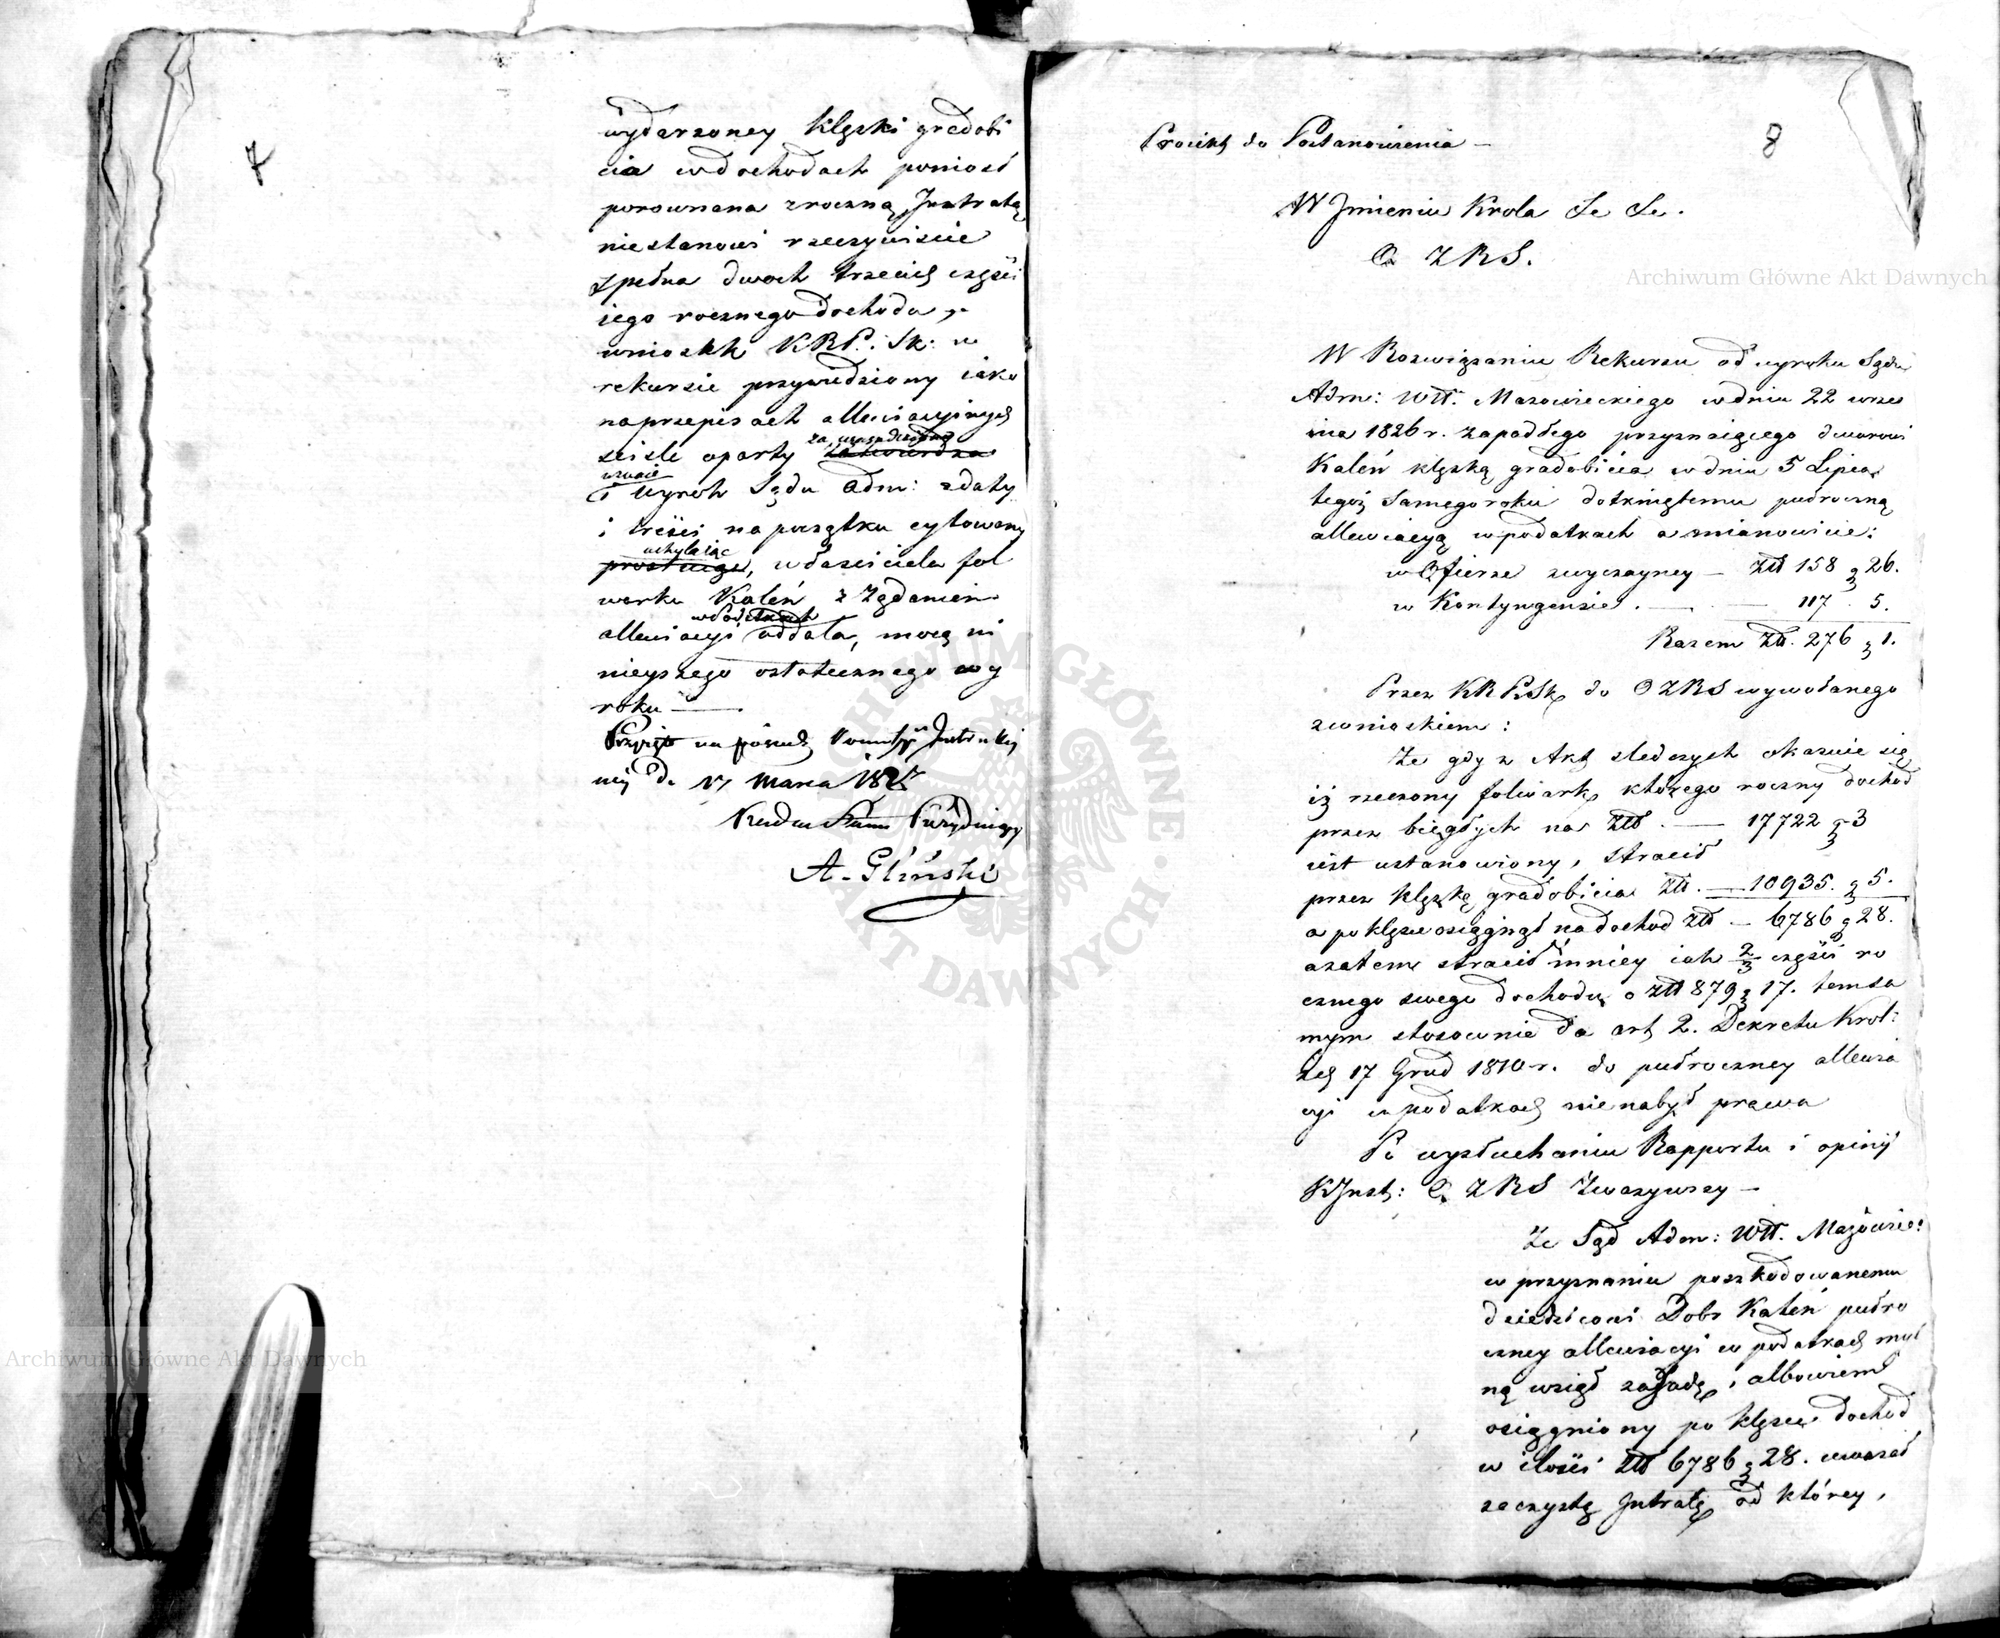 7
wydarzoney klęski gradobi
cia w dochodach poniosł
porownana z roczną Jntratą
nie stanowi rzeczywiscie
zpełna dwoch trzecich części
iego rocznego dochodu,
wniosek KRP. i Sk: w
rekursie przywiedziony iako
na przepisach allewiacyinych
scisle oparty za usprawiedliwiony zatwierdza
uznaie
i wyrok Sądu Adm: z daty
i treści na początku cytowany
uchylaiąc
, własciciela fol
warku Kaleń z żądaniem
w Podatkach
allewiacyi oddala, mocą ni
nieyszego ostatecznego wy
roku —
Przyięto na posiedz Kommissyi Jnstrukcyi
ney d. 17 Marca 1827
Radca Stanu Prezyduiący
A. Gliński
8
Proiekt do Postanowienia —
W Jmieniu Krola &c &c.
O ZRS.
Archiwum Główne Akt Dawnych
W Rozwiązaniu Rekursu od wyroku Sądu
Adm: Wtt. Mazowieckiego w dniu 22 wrze
snia 1826 r. zapadłego przyznaiącego dworowi
Kaleń klęską gradobicia w dniu 5 Lipca
tegoż samego roku dotkniętemu pułroczną
allewiacyą w podatkach a mianowicie:
w Ofierze zwyczayney — Złł 158 g 26.
w Kontyngensie . — — 117 . 5.
Razem Złł. 276 g 1.
Przez KRPiSk do OZRS wywołanego
z wnioskiem:
Że gdy z Akt sledczych okazuie się
iż rzeczony folwark, którego roczny dochod
przez biegłych na Złł . — 17722 g 3
iest ustanowiony, stracił
przez klęskę gradobicia Złł. — 10935. g 5.
a po klęsce osiągnął na dochod Złł — 6786 g 28.
a zatem stracił mniéy iak 2/3 części ro
cznego swego dochodu o Złł 879 g 17. tem sa
mym stosownie do art 2. Dekretu Krol:
z d 17 Grud 1810 r. do pułroczney allewia
cyi w podatkach nie nabył prawa
Po wysłuchaniu Rapportu i opinij
KJnst: O ZRS Zważywszy —
Że Sąd Adm: Wtt. Mazowie:
w przyznaniu poszkodowanemu
dziedzicowi Dobr Kaleń pułro
czney allewiacyi w podatkach myl
ną wziął zasadę, albowiem
osiągniony po klęsce dochod
w ilości Złł 6786 g 28. uważał
za czystą Jntratę od którey,
Archiwum Główne Akt Dawnych
ARCHIWUM GŁÓWNE · AKT DAWNYCH ·